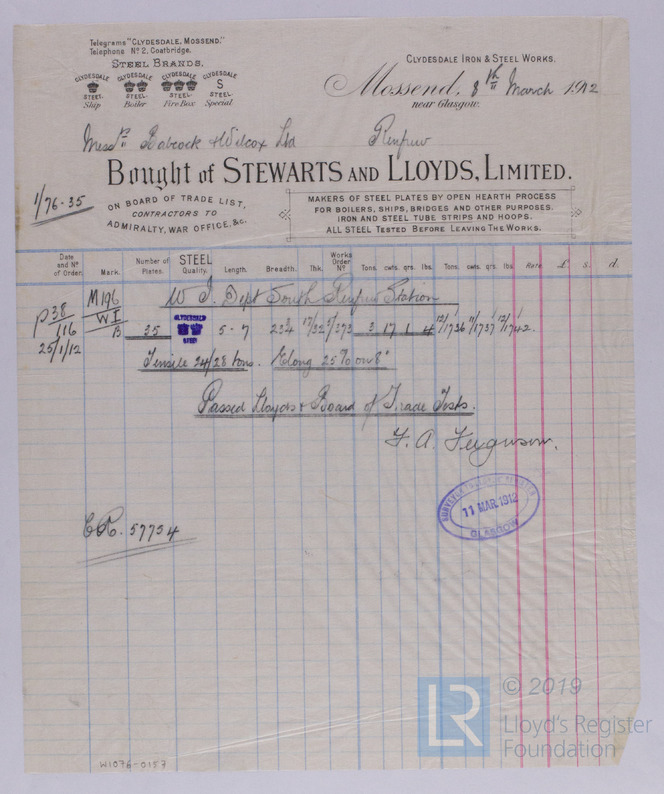 Telegrams "CLYDESDALE, MOSSEND."
Telephone Nº 2, Coatbridge.
STEEL BRANDS.
CLYDESDALE CLYDESDALE CLYDESDALE CLYDESDALE
S
STEEL. STEEL. STEEL. STEEL.
Ship Boiler Fire Box Special
CLYDESDALE IRON & STEEL WORKS.
Mossend, 8th March 1912
near Glasgow.
Messrs Babcock & Wilcox Ltd Renfrew
Bought of STEWARTS AND LLOYDS, LIMITED.
1/76-35
ON BOARD OF TRADE LIST,
CONTRACTORS TO
ADMIRALTY, WAR OFFICE, &c.
MAKERS OF STEEL PLATES BY OPEN HEARTH PROCESS
FOR BOILERS, SHIPS, BRIDGES AND OTHER PURPOSES.
IRON AND STEEL TUBE STRIPS AND HOOPS.
ALL STEEL TESTED BEFORE LEAVING THE WORKS.
Date and Nº of Order. Mark. Number of Plates. STEEL Quality. Length. Breadth. Thk. Works Order Nº Tons. cwts. qrs. lbs. Tons. cwts. qrs. lbs. Rate. £ s. d.
P38 M196 W I Dept South Renfrew Station
116 WI
25/1/12 B 35 CLYDESDALE STEEL 5-7 23¾ 17/32 5/373 3 17 1 4 12/1736 11/1737 12/1742.
Tensile 24/28 tons. Elong 25% on 8"
Passed Lloyds & Board of Trade Tests.
F. A. Ferguson.
11 MAR. 1912
GLASGOW
57754
© 2019
LR
Lloyd's Register
Foundation
W1076-0157